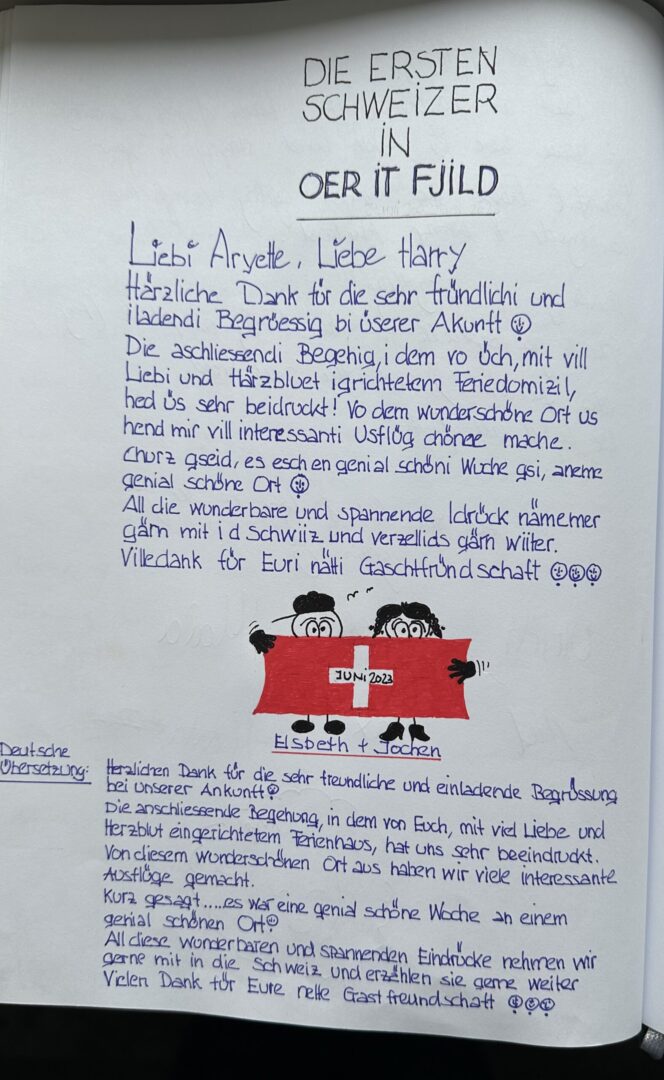 DIE ERSTEN
SCHWEIZER
IN
OER IT FJILD
Liebi Aryette, Liebe Harry
Härzliche Dank für die sehr fründlichi und
iladendi Begrüessig bi üserer Akunft
Die aschliessendi Begehig, i dem vo üch, mit vill
Liebi und Härzbluet igrichtetem Feriedomizil,
hed üs sehr beidruckt! Vo dem wunderschöne Ort us
hend mir vill interessanti Usflüg chönee mache.
Churz gseid, es esch en genial schöni Wuche gsi, aneme
genial schöne Ort
All die wunderbare und spannende Idrück nämemer
gärn mit i d Schwiiz und verzellids gärn wiiter.
Villedank för Euri nätti Gaschtfründschaft
JUNI 2023
Elsbeth + Jochen
Deutsche
Übersetzung:
Herzlichen Dank für die sehr freundliche und einladende Begrüssung
bei unserer Ankunft
Die anschliessende Begehung, in dem von Euch, mit viel Liebe und
Herzblut eingerichtetem Ferienhaus, hat uns sehr beeindruckt.
Von diesem wunderschönen Ort aus haben wir viele interessante
Ausflüge gemacht.
Kurz gesagt....es war eine genial schöne Woche an einem
genial schönen Ort
All diese wunderbaren und spannenden Eindrücke nehmen wir
gerne mit in die Schweiz und erzählen sie gerne weiter
Vielen Dank für Eure nette Gastfreundschaft